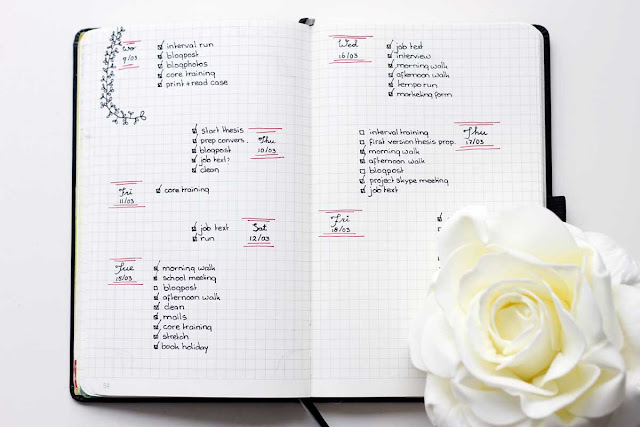 Wo
9/03
interval run
blogpost
blogphotos
core training
print + read case
start thesis
prep convers.
blogpost
job text?
clean
Thu
10/03
Fri
11/03
core training
job text
run
Sat
12/03
Tue
15/03
morning walk
school meeting
blogpost
afternoon walk
clean
mails
core training
stretch
book holiday
Wed
16/03
job text
interview
morning walk
afternoon walk
tempo run
marketing form
interval training
first version thesis prop.
morning walk
afternoon walk
blogpost
project skype meeting
job text
Thu
17/03
Fri
18/03